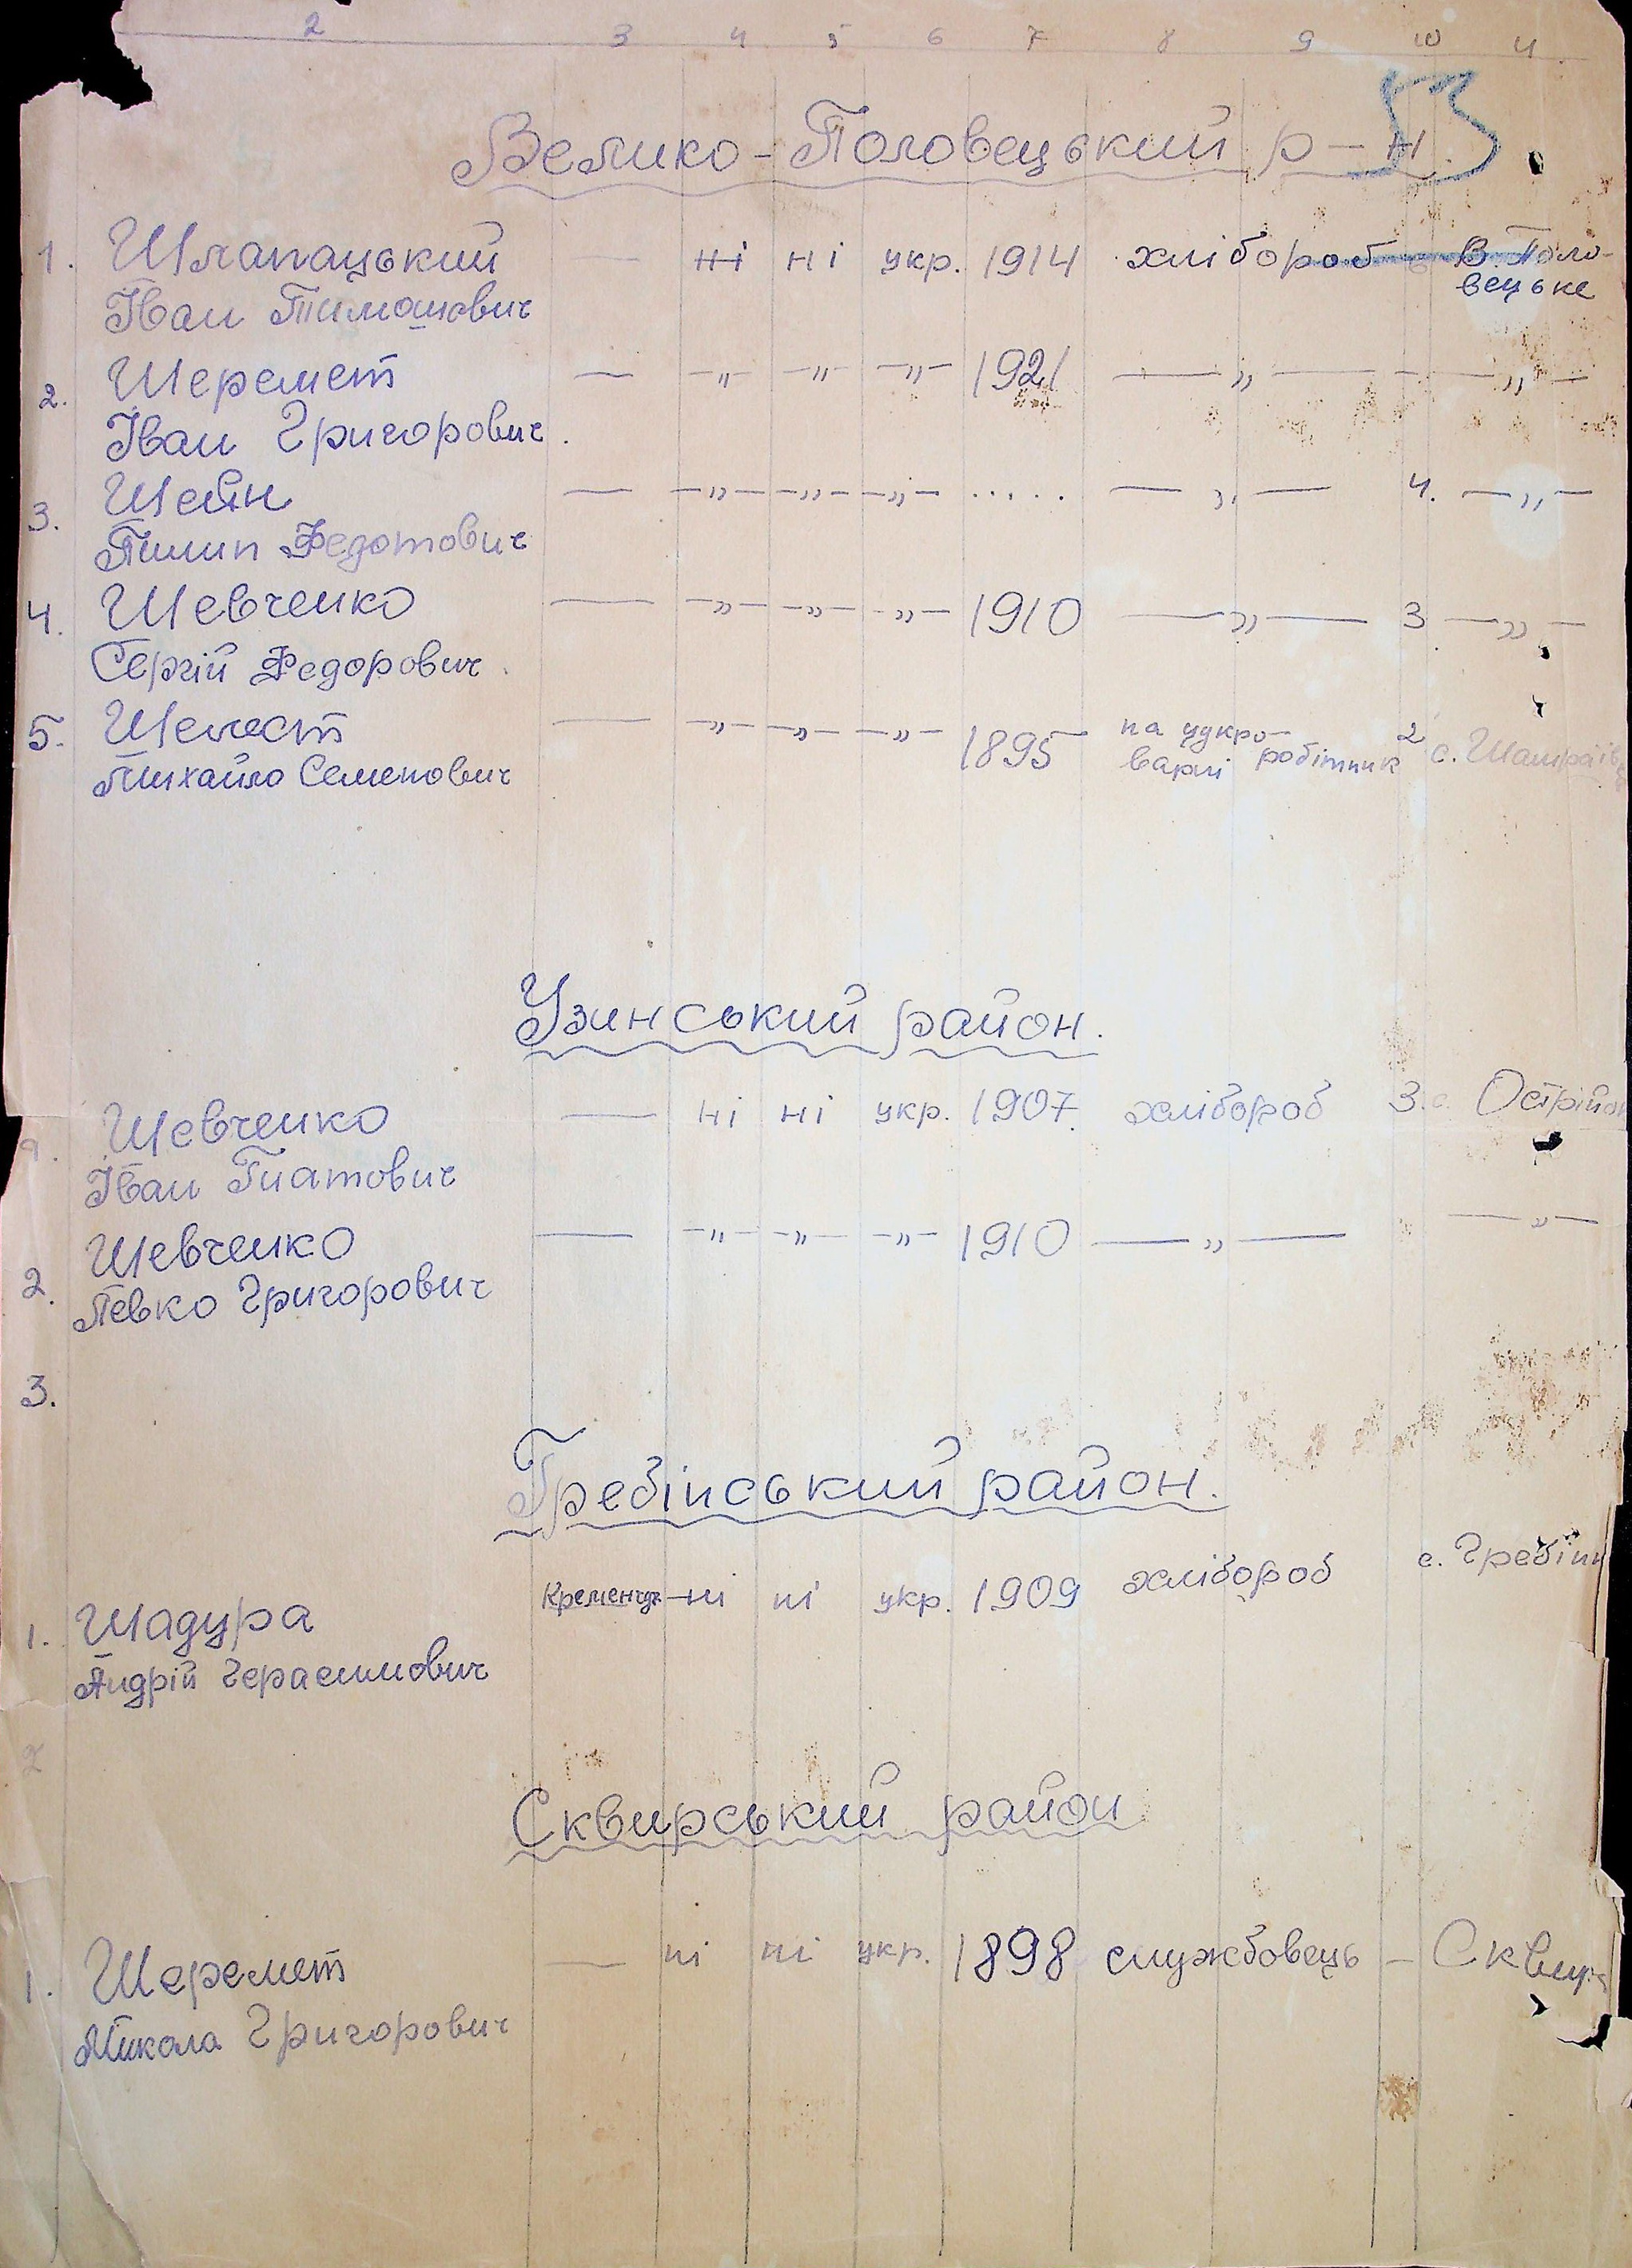 2 3 4 5 6 7 8 9 10 11
53
Велико-Половецький р-н.
1. Шлапацький — ні ні укр. 1914 хлібороб 6 В. Поло-
Іван Тимошович вецьке
2. Шеремет — —"— —"— —"— 1921 —"— — —"—
Іван Григорович.
3. Шеїн — —"— —"— —"— ..... —"— 4. —"—
Пилип Федотович
4. Шевченко — —"— —"— —"— 1910 —"— 3 —"—
Сергій Федорович
5. Шелест — —"— —"— —"— 1895 на цукро- 2 с. Шамраївц
Михайло Семенович варні робітник
Узинський район.
1. Шевченко — ні ні укр. 1907. хлібороб 3. с. Острійки
Іван Гнатович
2. Шевченко — —"— —"— —"— 1910 —"— —"—
Левко Григорович
3.
Гребінський район.
1. Шадура Кременчук ні ні укр. 1909 хлібороб с. Гребінк
Андрій Герасимович
2
Сквирський район
1. Шеремет — ні ні укр. 1898 службовець — Сквира
Микола Григорович